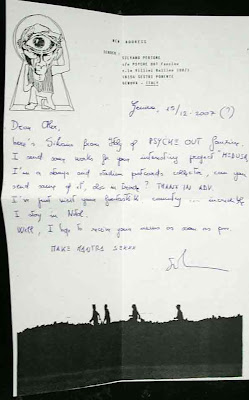 NEW ADDRESS
SENDER:
SILVANO PERTONE
c/o PSYCHE OUT Fanzine
16154 SESTRI PONENTE
GENOVA - ITALY
Genova, 15/12-2007 (?)
Dear
here's Silvano from Italy of PSYCHE OUT fanzine.
I send some works for your interesting project MEDUSA.
I'm a stamps and stadium postcards collector, can you
send some of it, also in ? THANK IN ADV.
I've just visit your fantastic country...
I stay in
Well, I hope to receive your news as soon as pos.
MAKE MANTRA